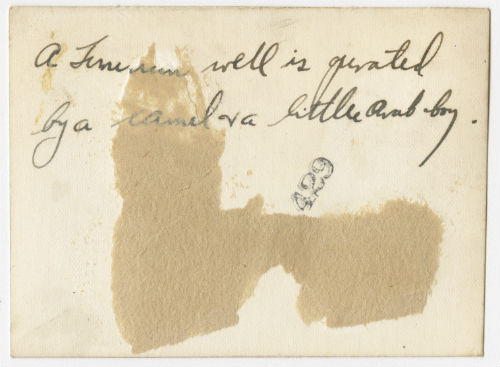 A Tunisian well is operated
by a camel & a little Arab boy.